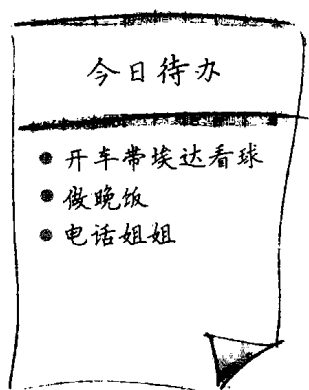 今日待办
● 开车带埃达看球
● 做晚饭
● 电话姐姐